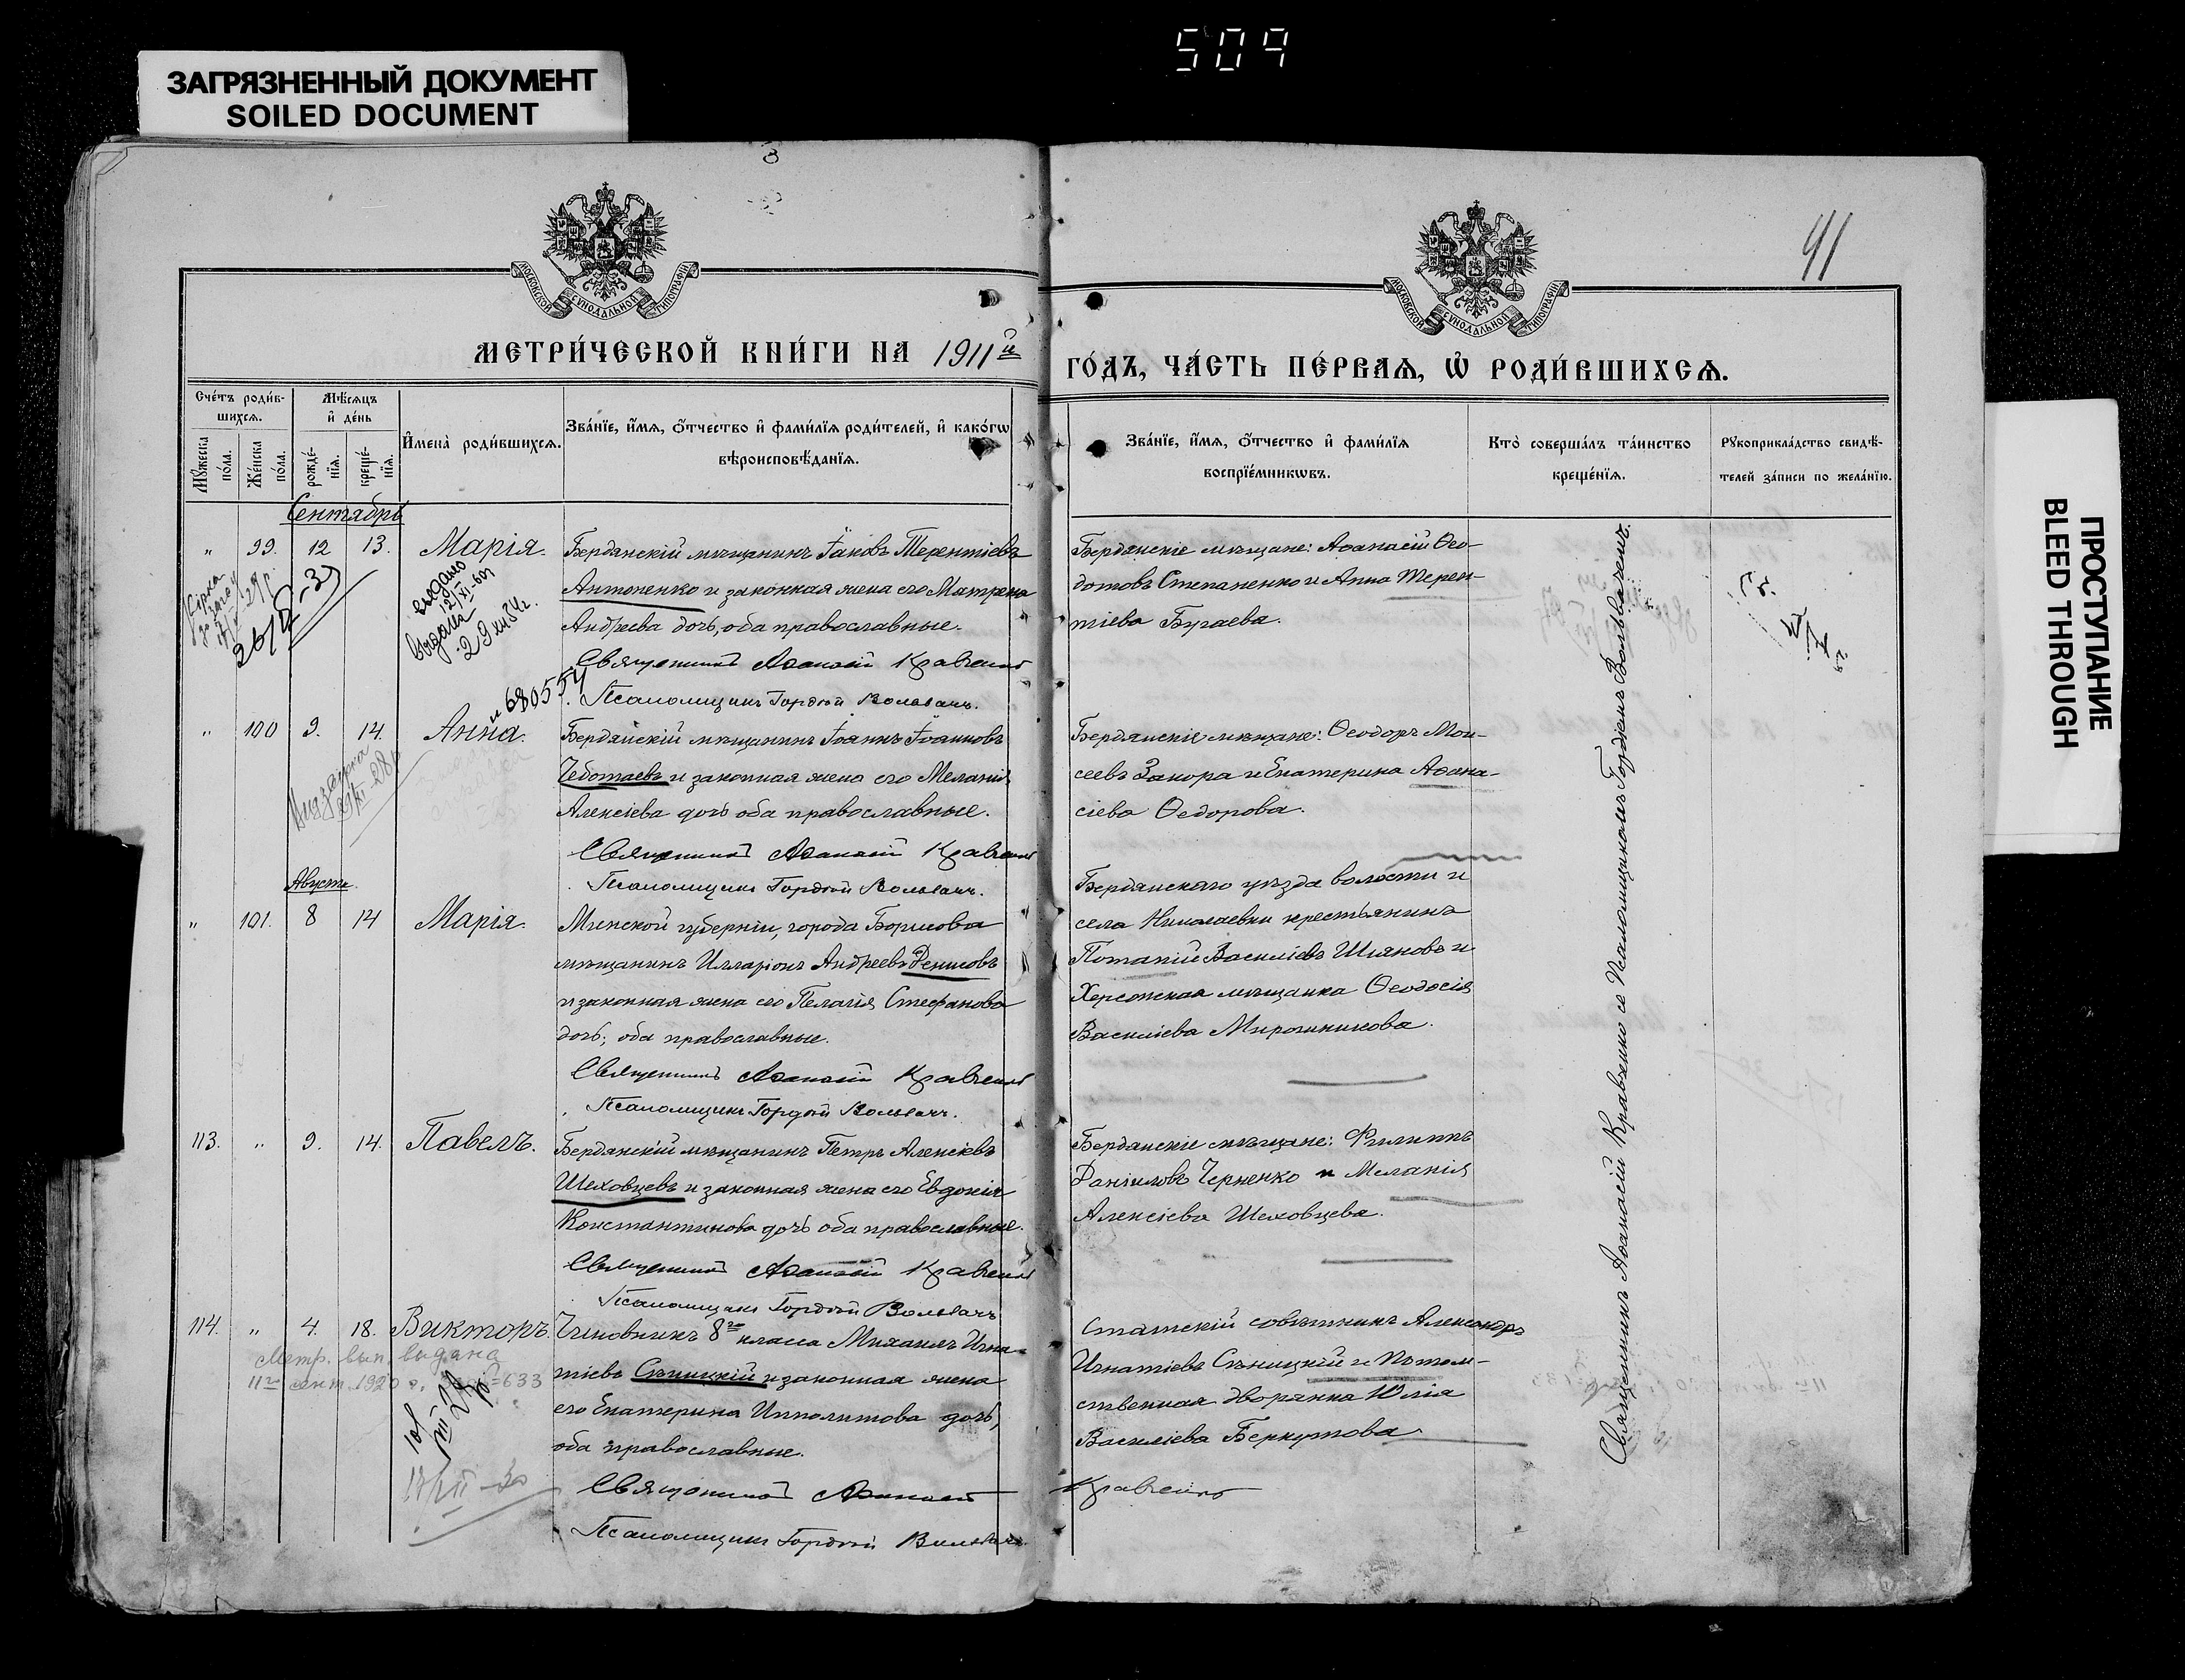 509
ЗАГРЯЗНЕННЫЙ ДОКУМЕНТ
SOILED DOCUMENT
ПРОСТУПАНИЕ
BLEED THROUGH
41
МОСКОВСКОЙ СѴНОДАЛЬНОЙ ТИПОГРАФІИ
МОСКОВСКОЙ СѴНОДАЛЬНОЙ ТИПОГРАФІИ
МЕТРИ́ЧЕСКОЙ КНИ́ГИ НА 1911й
ГО́ДЪ, ЧА́СТЬ ПЕ́РВАѦ, Ѡ҆ РОДИ́ВШИХСѦ.
Сче́тъ роди́в-
шихсѧ.
Мꙋ́жеска
по́ла.
Же́нска
по́ла.
Мѣ́сѧцъ
и҆ де́нь
рожде́-
нїѧ.
креще́-
нїѧ.
И҆мена̀ роди́вшихсѧ.
Зва́нїе, и҆́мѧ, ѻ҆́тчество и҆ фами́лїѧ роди́телей, и҆ како́гѡ
вѣроисповѣ́данїѧ.
Зва́нїе, и҆́мѧ, ѻ҆́тчество и҆ фами́лїѧ
воспрїе́мникѡвъ.
Кто̀ соверша́лъ та́инство
креще́нїѧ.
Рꙋкоприкла́дство свидѣ́-
телей за́писи по жела́нїю.
Сентябрь
" 99. 12 13. Марія.
Бердянскій мѣщанинъ Іаковъ Терентіевъ
Антоненко и законная жена его Матрена
Андреева дочь, оба православные.
Священникъ Аѳанасій Кравченко
Псаломщикъ Гордій Вольвачъ.
Бердянскіе мѣщане: Аѳанасій Ѳео-
дотовъ Степаненко и Анна Терен-
тіева Бугаева.
выдано
выдана
29 XII 34 г.
№ 680554
" 100 9. 14. Анна.
Бердянскій мѣщанинъ Іоаннъ Іоанновъ
Чеботаевъ и законная жена его Меланія
Алексіева дочь оба православные.
Священникъ Аѳанасій Кравченко
Псаломщикъ Гордій Вольвачъ.
Бердянскіе мѣщане: Ѳеодоръ Мои-
сеевъ Закора и Екатерина Аѳана-
сіева Ѳедорова.
Августъ.
" 101. 8 14 Марія.
Минской губерніи, города Борисова
мѣщанинъ Илларіонъ Андреевъ Денисовъ
и законная жена его Пелагія Стефанова
дочь, оба православные.
Священникъ Аѳанасій Кравченко
Псаломщикъ Гордій Вольвачъ.
Бердянскаго уѣзда волости и
села Николаевки крестьянинъ
Потапій Василіевъ Шіяновъ и
Херсонская мѣщанка Ѳеодосія
Василіева Мирошникова.
113. " 9. 14. Павелъ.
Бердянскій мѣщанинъ Петръ Алексіевъ
Шеховцевъ и законная жена его Евдокія
Константинова дочь оба православные.
Священникъ Аѳанасій Кравченко
Псаломщикъ Гордій Вольвачъ
Бердянскіе мѣщане: Филиппъ
Даніиловъ Черненко и Меланія
Алексіева Шеховцева.
114. " 4. 18. Викторъ.
Чиновникъ 8го класса Михаилъ Игна-
тіевъ Сѣницкій и законная жена
его Екатерина Ипполитова дочь,
оба православные.
Священникъ Аѳанасій Кравченко
Псаломщикъ Гордій Вольвачъ.
Статскій совѣтникъ Александръ
Игнатіевъ Сѣницкій и потом-
ственная дворянка Юлія
Василіева Беркутова
Метр. вып. выдана
11го сент. 1920 г. №633
Священникъ Аѳанасій Кравченко съ Псаломщикомъ Гордіемъ Вольвачемъ.